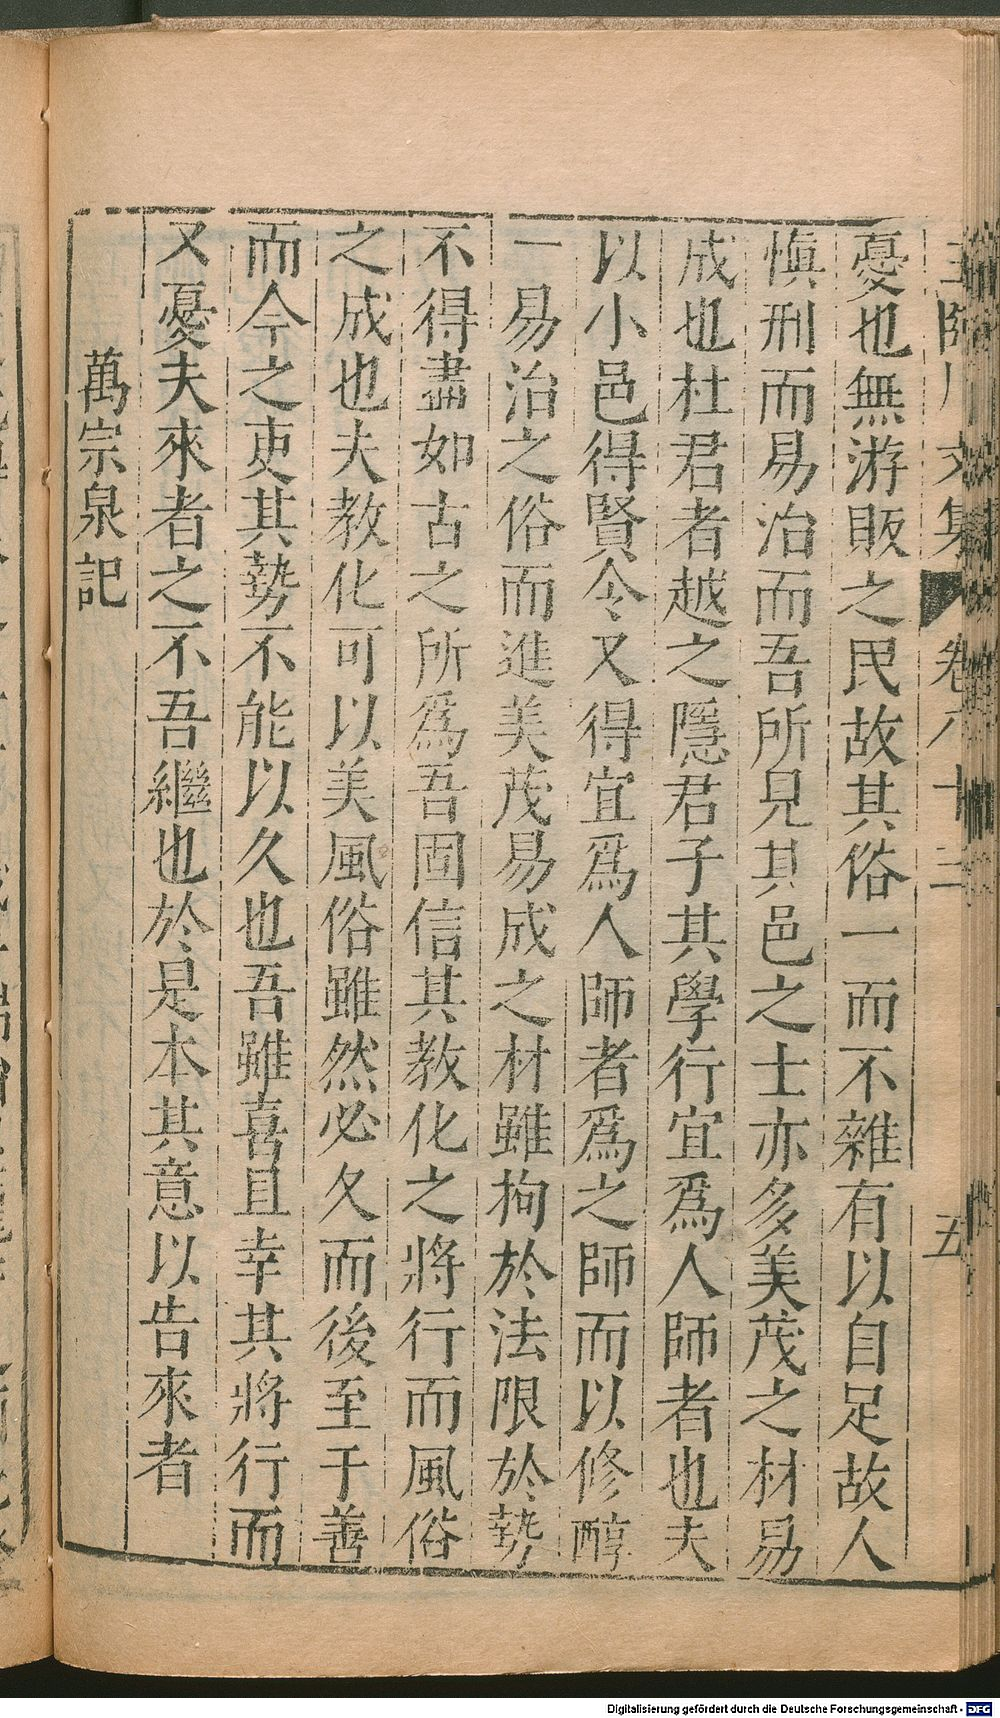 文集 卷八十三 五
憂也無游販之民故其俗一而不雜有以自足故人
愼刑而易治而吾所見其邑之士亦多美茂之材易
成也杜君者越之隱君子其學行宜爲人師者也夫
以小邑得賢令又得宜爲人師者爲之師而以修醇
一易治之俗而進美茂易成之材雖拘於法限於勢
不得盡如古之所爲吾固信其教化之將行而風俗
之成也夫教化可以美風俗雖然必久而後至于善
而今之吏其勢不能以久也吾雖喜且幸其將行而
又憂夫來者之不吾繼也於是本其意以告來者
萬宗泉記
Digitalisierung gefördert durch die Deutsche Forschungsgemeinschaft - DFG